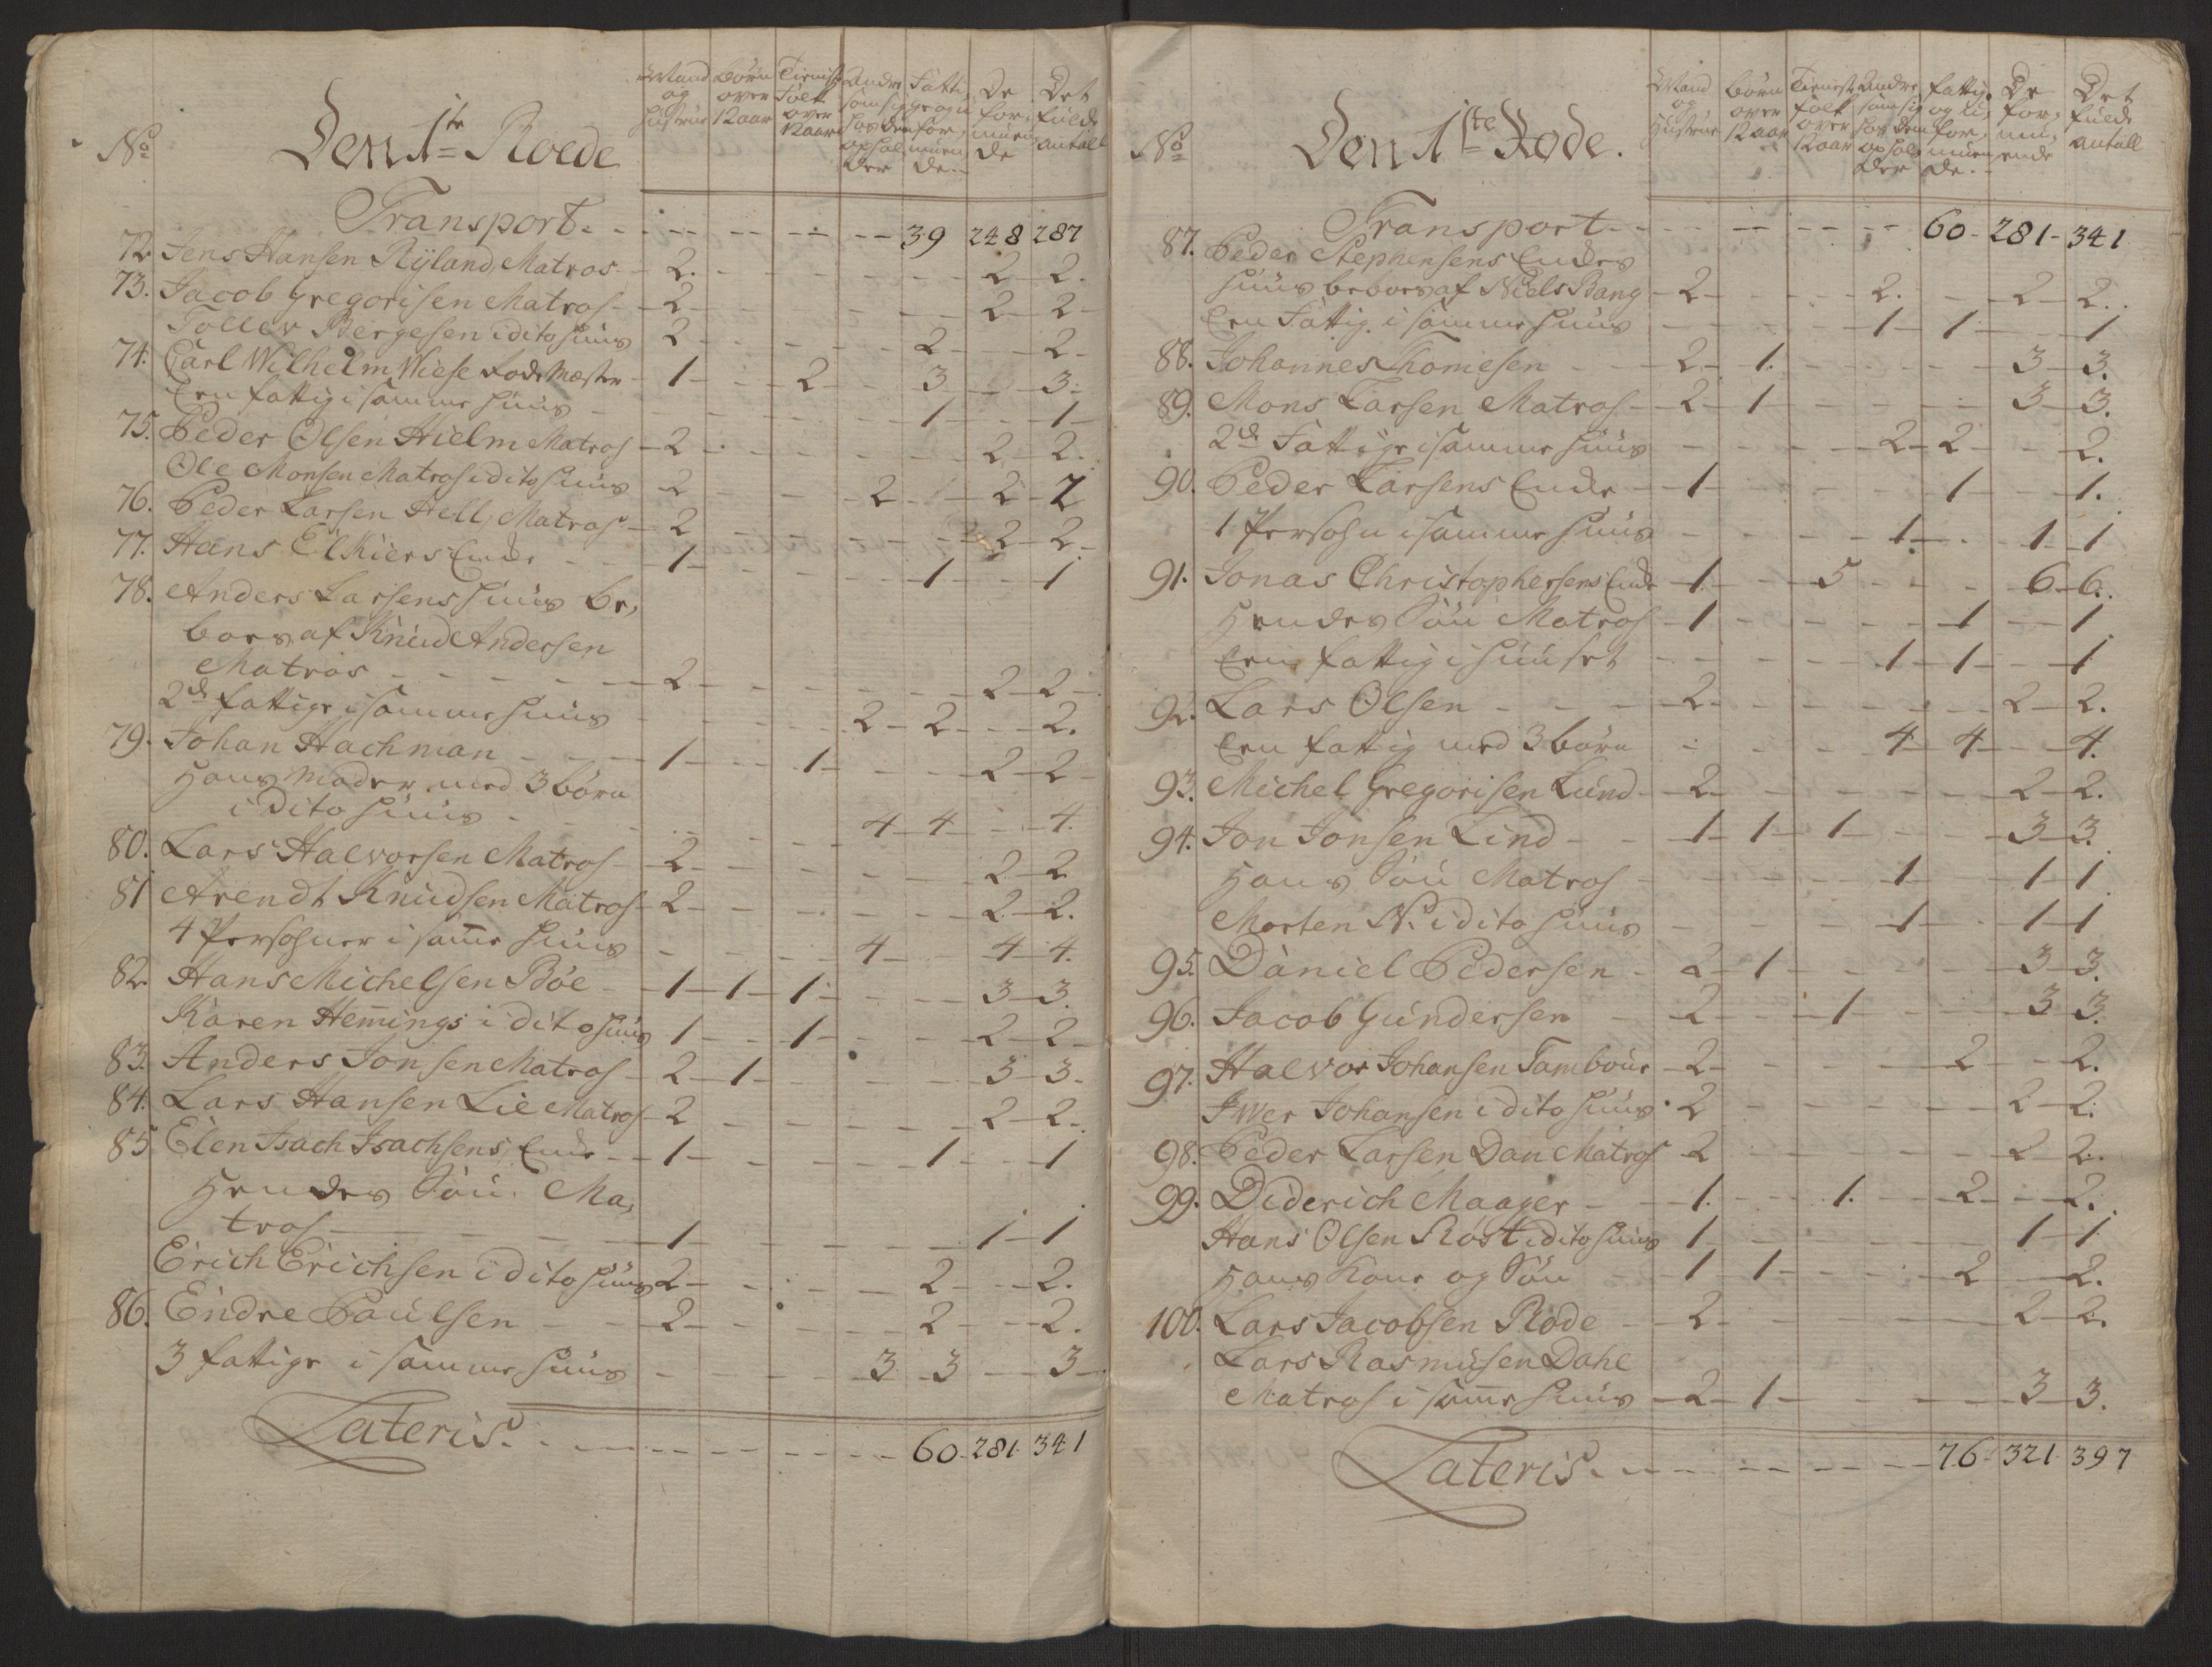 No Den 1te Roede
Mand og Hustrue | Börn over 12 aar | Tieniste Folk over 12 aar | Andre som sig hos dem opholder | Fattige og uformuende | De formuende | Det fulde antall
Transport. - - 39 248 287
72. Jens Hansen Rÿland Matros - 2. - 2 - 2.
73. Jacob Gregorisen Matros - 2 - 2 - 2 -
Toller Bergesen i dito Huus 2 - 2 - 2 -
74. Carl Wilhelm Wiese Rodemæster - 1 - 2 - 3 - 3 -
Een fattig i samme Huus - 1 - 1 -
75. Peder Olsen Hielm Matros - 2 - 2 - 2.
Ole Monsen Matros i dito Huus - 2 - 2 - 2 - 2
76. Peder Larsen Hell, Matros - 2 - 2 - 2 -
77. Hans Elkiers Enke - 1 - 1 - 1
78. Anders Larsens Huus be,
boes af Knud Andersen
Matros - 2 - 2 - 2 -
2de fattige i samme Huus - 2 - 2 - 2.
79. Johan Hachman - 1 - 1 - 2 - 2 -
Hans Moder med 3 börn
i dito Huus - 4 - 4 - 4.
80. Lars Halvorsen Matros - 2 - 2 - 2
81 Arendt Knudsen Matros - 2 - 2 - 2.
4 Persohner i same Huus - 4 - 4 - 4.
82. Hans Michelsen Böe - 1 - 1 - 1 - 3 - 3.
Karen Hemings i dito Huus 1 - 1 - 2 - 2 -
83. Anders Jonsen Matros - 2 - 1 - 3 - 3 -
84. Lars Hansen Lie Matros - 2 - 2 - 2 -
85 Elen Isach Isachsens Enke - 1 - 1 - 1
Hendes Sön Ma,
tros - 1 - 1 - 1
Erich Erichsen i dito Huus 2 - 2 - 2.
86. Endre Paulsen - 2 - 2 - 2.
3 fattige i samme Huus - 3 - 3 - 3 -
Lateris. - - 60. 281. 341
No Den 1ste Rode.
Mand og Hustrue | Börn over 12 aar | Tieniste folk over 12 aar | Andre som sig hos dem opholder | fattige og uformuende | De formuende | Det fulde antall
Transport - - 60 - 281 - 341
87. Peder Stephensens Enkes
Huus beboes af Niels Bang - 2 - 2. - 2 - 2.
Een Fattig i samme Huus - 1 - 1 - 1
88. Johannes Thomesen - 2 - 1. - 3 - 3.
89. Mons Larsen Matros - 2 - 1 - 3 - 3.
2de Fattige i samme Huus - 2 - 2 - 2.
90. Peder Larsens Enke - 1 - 1 - 1.
1 Persohn i samme Huus - 1 - 1 - 1
91. Jonas Christophersens Enke - 1 - 5 - 6 - 6.
Hendes Sön Matros - 1 - 1 - 1
Een fattig i Huuset - 1 - 1 - 1
92. Lars Olsen - 2 - 2 - 2.
Een fattig med 3 börn - 4 - 4 - 4.
93. Michel Gregorisen Lund - 2 - 2 - 2.
94. Jon Jonsen Lind - 1 - 1 - 1 - 3 - 3.
Hans Sön Matros - 1 - 1 - 1
Morten N. i dito Huus - 1 - 1 - 1
95. Daniel Pedersen - 2 - 1 - 3 - 3.
96. Jacob Gundersen - 2 - 1 - 3 3.
97. Halvor Johansen Tambour - 2 - 2 - 2.
Iwer Johansen i dito Huus. 2 - 2 - 2.
98. Peder Larsen Dan Matros 2 - 2 2.
99. Diderich Maager - 1. - 1. - 2 - 2.
Hans Olsen Röst i dito Huus 1 - 1 - 1
Hans Kone og Sön - 1 - 1 - 2 - 2.
100. Lars Jacobsen Rode - 2 - 2 - 2.
Lars Rasmusen Dahl
Matros i same Huus - 2 - 1 - 3 - 3.
Lateris. - - 76 321. 397